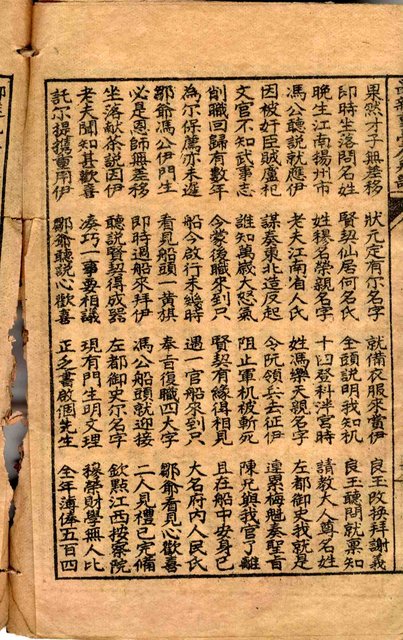 果然才子無差移 狀元定有尔名字 就備衣服來賞伊 良玉改換拜謝義
即時坐落問名姓 賢契仙居何名氏 全頭説明我知机 良玉聽問就稟知
晚生江南揚州市 姓穆名榮親名字 十四登科洋宮時 請教大人尊名姓
馮公聽說就應伊 老夫江南省人氏 姓馮樂天親名字 左都御史我就是
因被奸臣賊盧杞 謀奏東北造反起 令阮領兵去征伊 連累梅魁奏聖旨
文官不知武事志 誰知萬歲大怒氣 阻止軍机被斬死 陳兄與我官了離
削職回歸有數年 今蒙復職來到只 賢契有緣得相見 且在船中安身已
為尔保薦亦未遲 船今啟行未幾時 遇一官船來到只 大名府內人民氏
鄒爺馮公伊門生 看見船頭一黃棋 奉旨復職四大字 鄒爺看見心歡喜
必是恩師無差移 即時過船來拜伊 馮公船頭就迎接 二人見禮已完俻
坐落献茶說因伊 聽說賢契得成器 左都御史尔名字 欽點江西按察院
老夫聞知甚歡喜 湊巧一事要相議 現有門生明文理 穆榮財學無人比
託尔提携重用伊 鄒爺聽說心歡喜 正乏書啟個先生 全年薄俸五百四